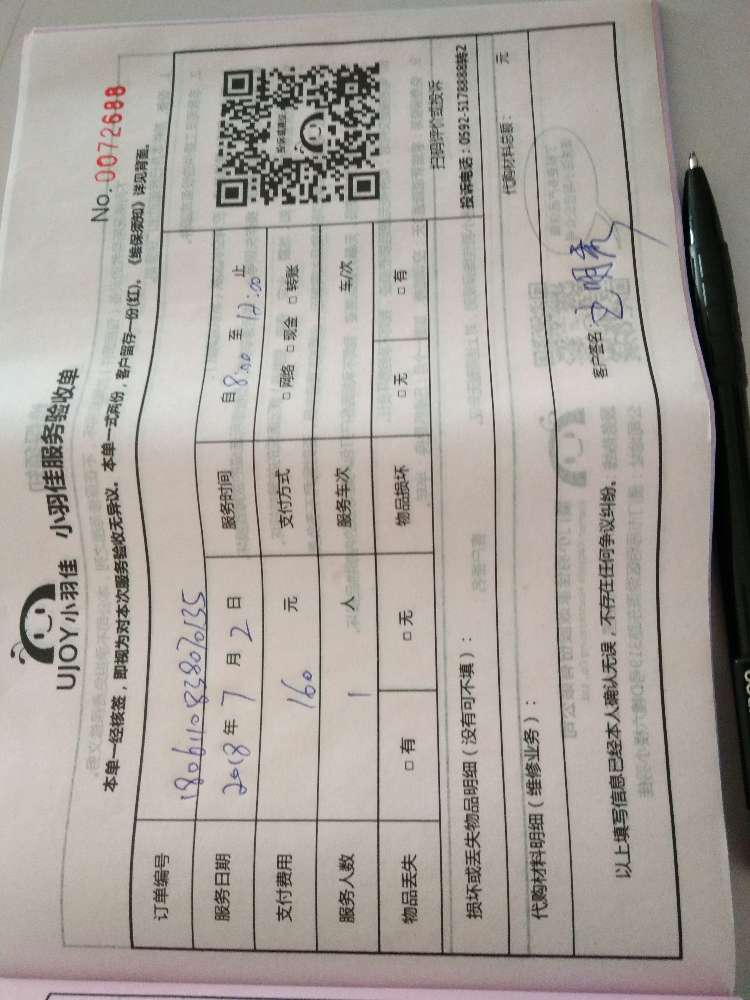 UJOY小羽佳 小羽佳服务验收单
No. 0072688
本单一经核签，即视为对本次服务验收无异议。本单一式两份，客户留存一份(红)，《维保须知》详见背面。
订单编号 180611083807 0135
服务日期 2018年 7月 2日 服务时间 自8:00至12:00止
支付费用 160 元 支付方式 □网络 □现金 □转账
服务人数 1 人 服务车次 车/次
物品丢失 □有 □无 物品损坏 □无 □有
投诉或建议
扫码评价或投诉
投诉电话：0592-5178888转2
损坏或丢失物品明细（没有可不填）：
代购材料明细（维修业务）： 代购材料总额： 元
以上填写信息已经本人确认无误，不存在任何争议纠纷。 客户签名：